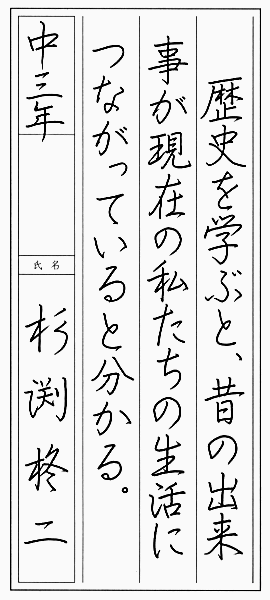 歴史を学ぶと、昔の出来
事が現在の私たちの生活に
つながっていると分かる。
中三年
氏名
杉渕柊二